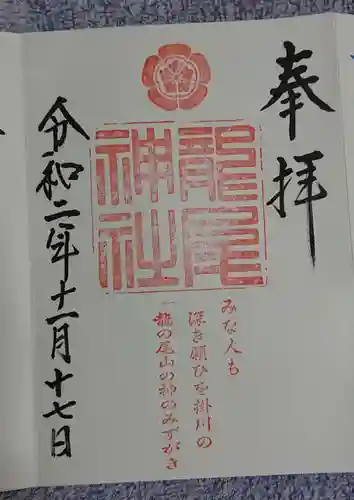 奉拝
龍尾神社
みな人も
深き願ひを掛川の
龍の尾山の神のみずがき
令和二年十一月十七日